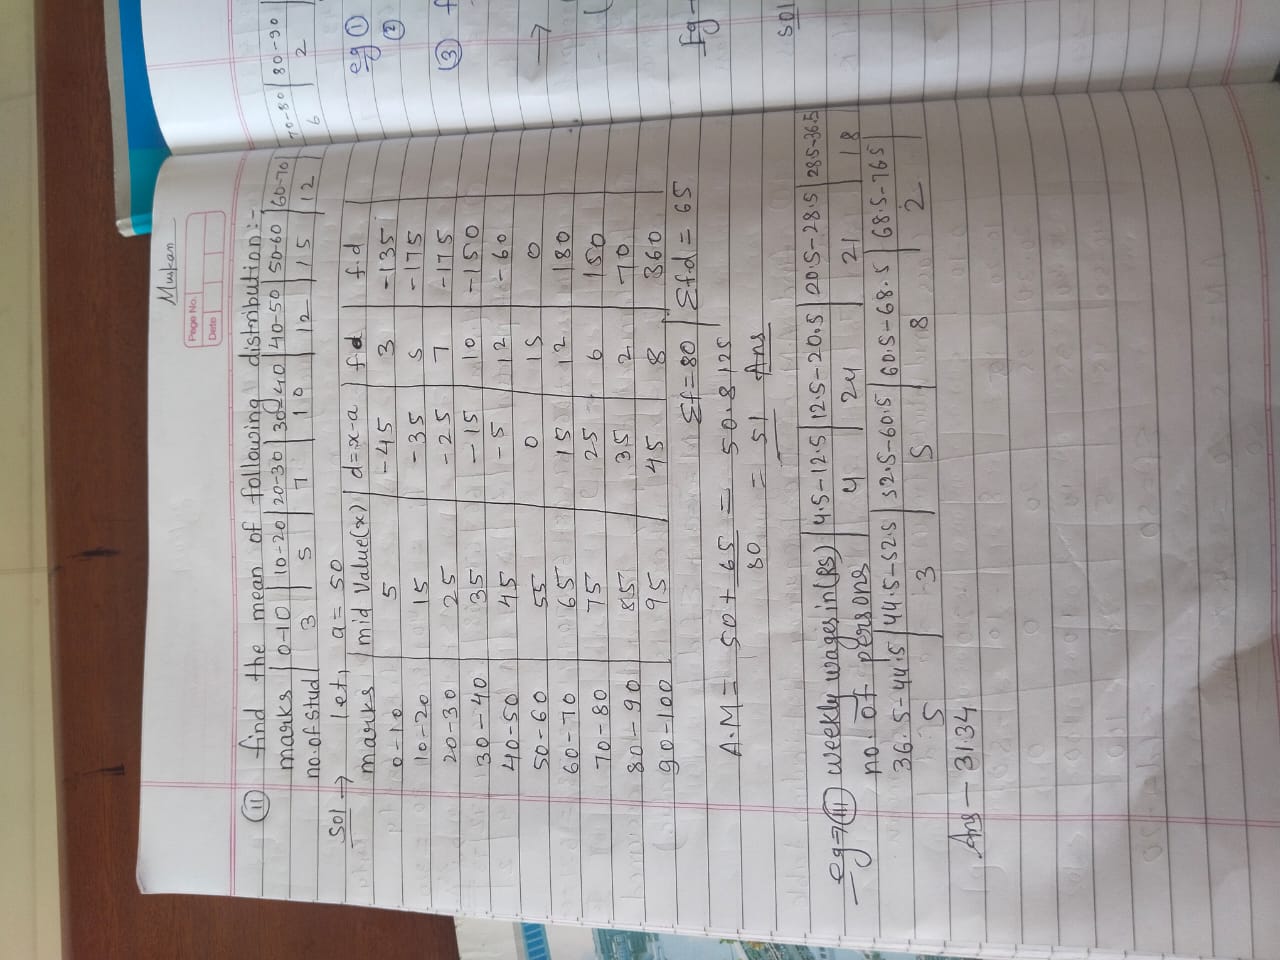 Muskan
Page No.
Date
(ii) find the mean of following distribution:-
marks | 0-10 | 10-20 | 20-30 | 30-40 | 40-50 | 50-60 | 60-70 | 70-80 | 80-90
no. of stud | 3 | 5 | 7 | 10 | 12 | 15 | 12 | 6 | 2
Sol → let, a = 50
marks | mid value(x) | d=x-a | f | f.d
0-10 | 5 | -45 | 3 | -135
10-20 | 15 | -35 | 5 | -175
20-30 | 25 | -25 | 7 | -175
30-40 | 35 | -15 | 10 | -150
40-50 | 45 | -5 | 12 | -60
50-60 | 55 | 0 | 15 | 0
60-70 | 65 | 15 | 12 | 180
70-80 | 75 | 25 | 6 | 150
80-90 | 85 | 35 | 2 | 70
90-100 | 95 | 45 | 8 | 360
Σf=80 | Σfd = 65
A.M = 50 + 65/80 = 50.8125
= 51 Ans
eg→(iii) weekly wages in (RS) | 4.5-12.5 | 12.5-20.5 | 20.5-28.5 | 28.5-36.5
no. of persons | 4 | 24 | 21 | 18
36.5-44.5 | 44.5-52.5 | 52.5-60.5 | 60.5-68.5 | 68.5-76.5
5 | 3 | 5 | 8 | 2
Ans - 31.34
eg ①
②
③
→
Eg-
Sol